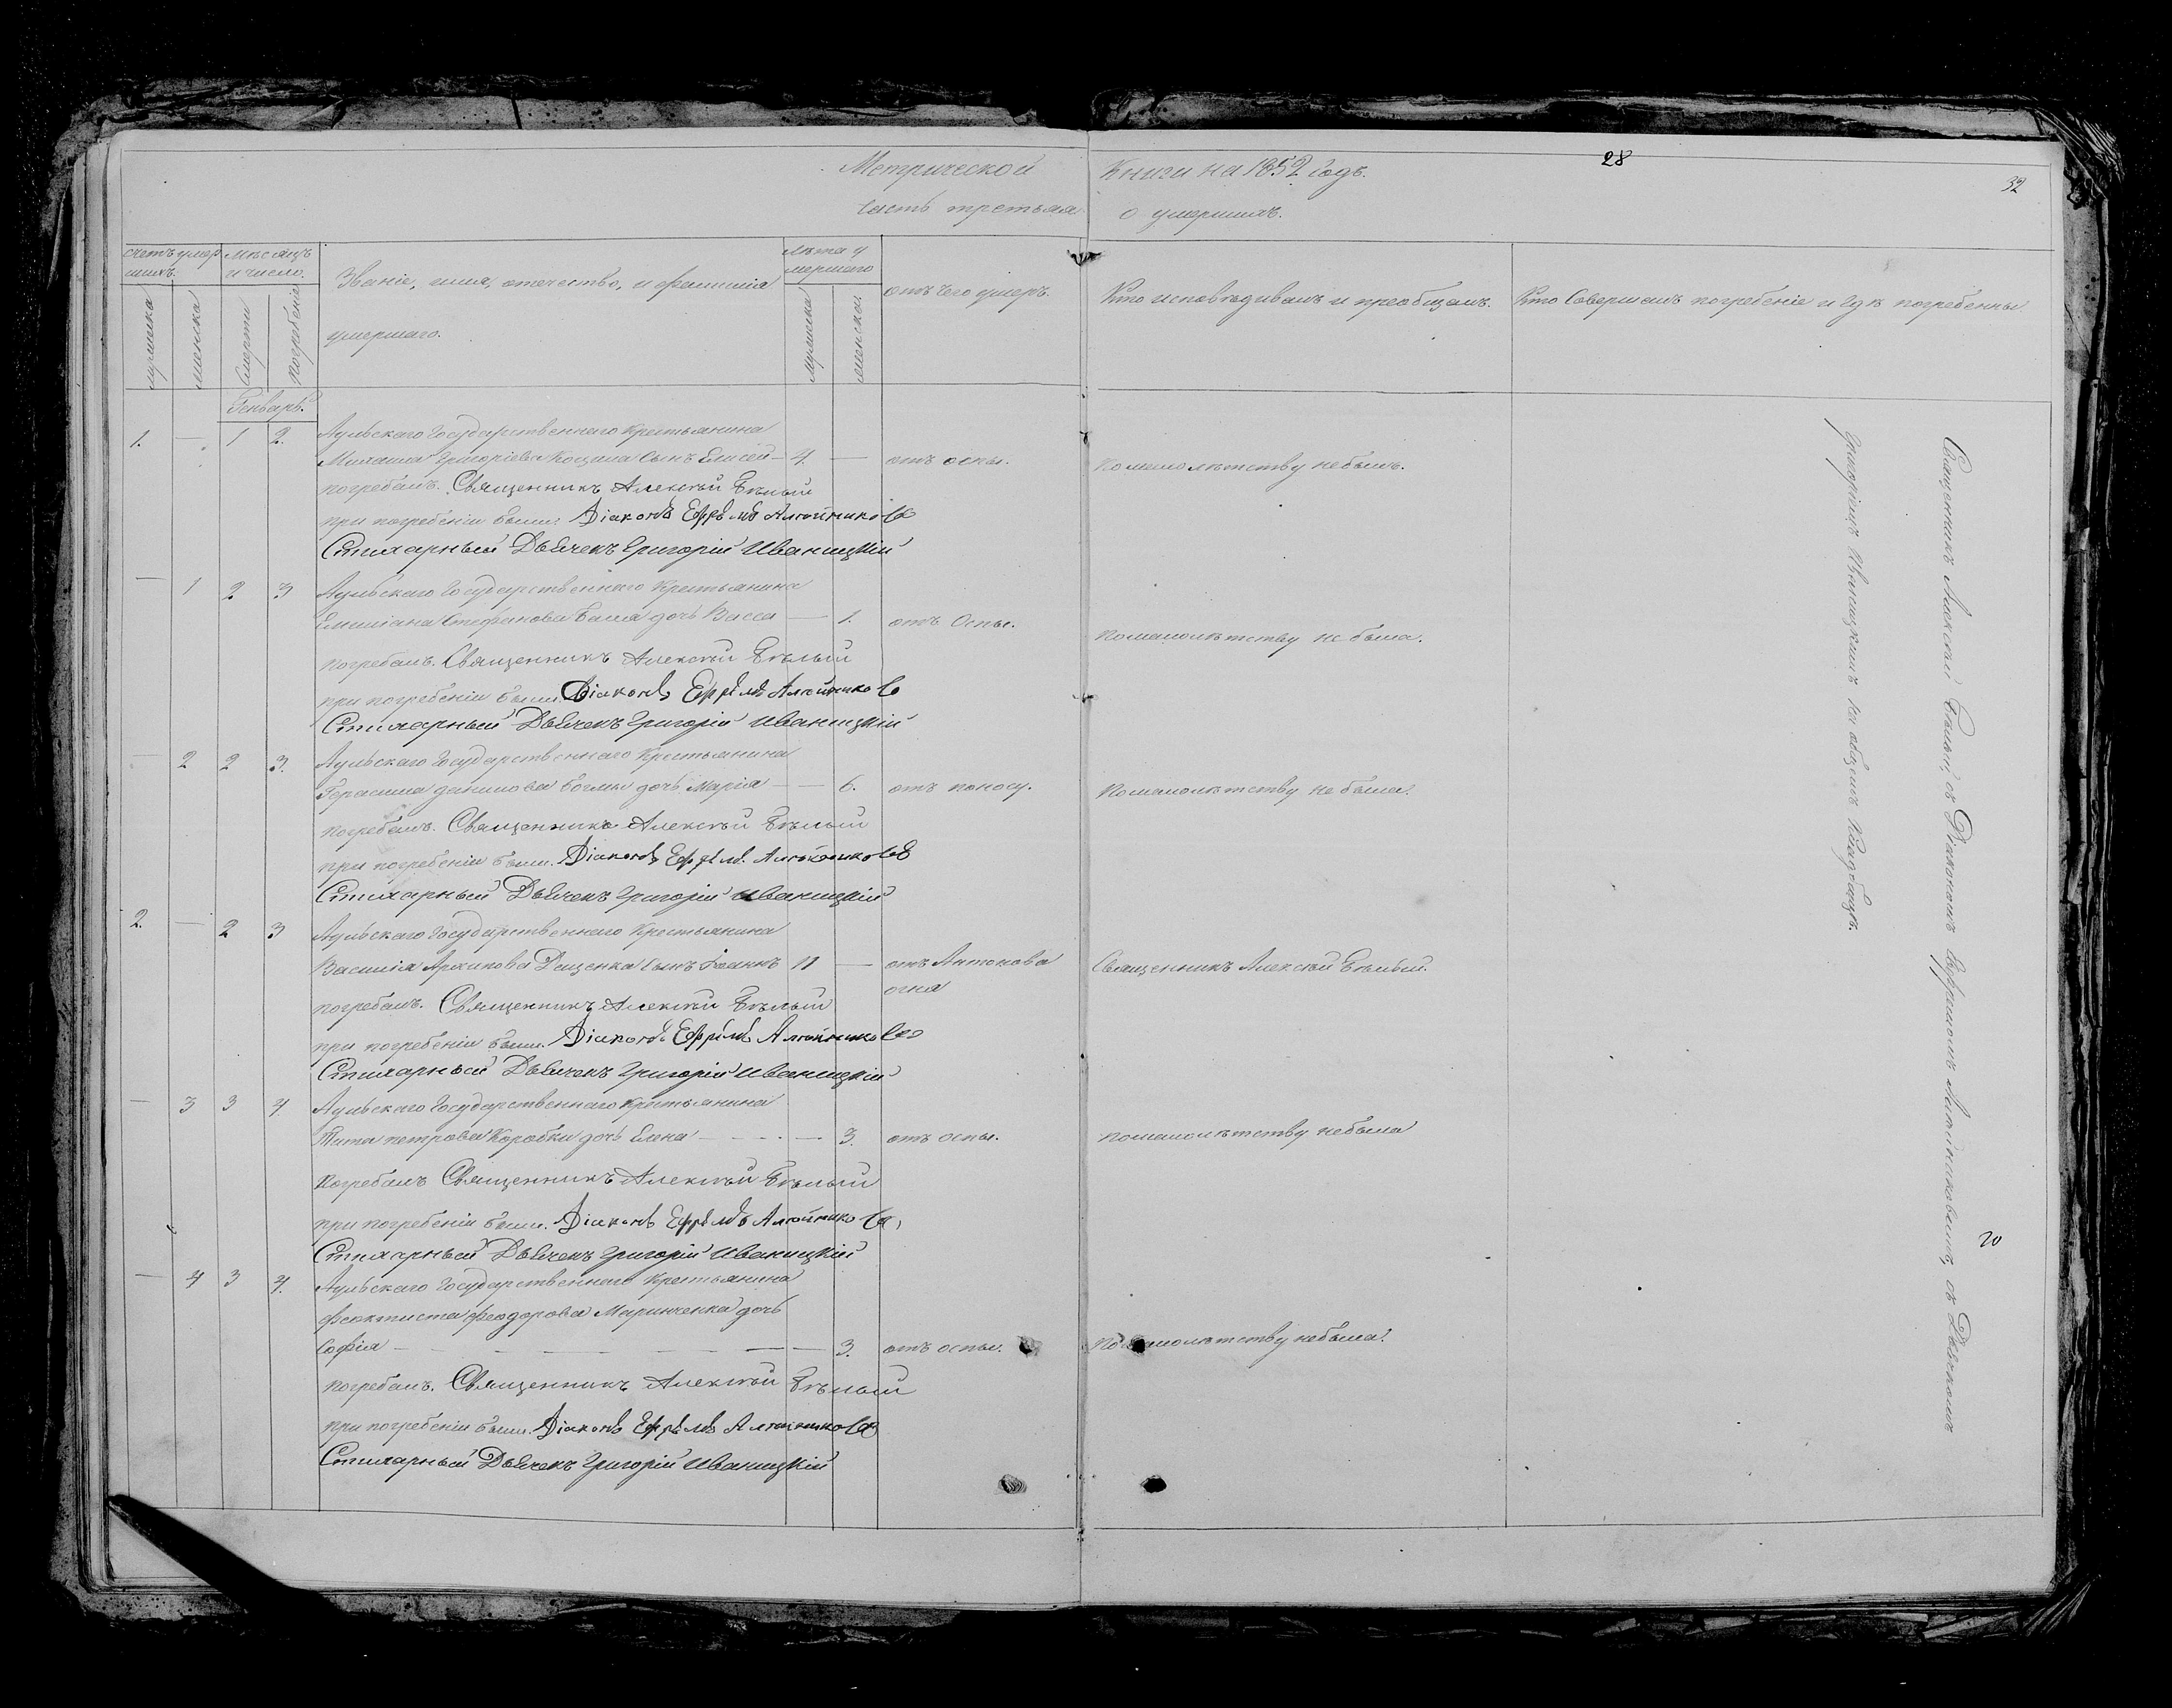 Метрической Книги на 1852 годъ. 28
32
Часть третьяя о умершихъ.
Счетъ умер
шихъ.
Мѣсяцъ
и число.
Званіе, имя, отечество, и фамилія
умершаго.
Лѣта у
мершаго
отъ чего умеръ.
Кто исповѣдывалъ и преобщалъ.
Кто Совершалъ погребеніе и гдѣ погребенны
мужеска
женска
Смерти
погребенія
мужеска
женска.
Генварь.
1. — 1 2. Аульскаго Государственнаго Крестьянина
Михаила Григоріева сынъ Елисей — 4. — отъ оспы. по малолѣтству не былъ.
погребалъ. Священникъ Алексѣй Бѣлый
при погребеніи были: Діаконъ Ефрѣмъ Алтойнико
Стихарный Дьячекъ Григорій Иваницкій
— 1 2 3 Аульскаго Государственнаго Крестьянина
Емиліана Стефанова дочь Васса — 1. отъ Оспы. помалолѣтству не была.
погребалъ. Священникъ Алексѣй Бѣлый
при погребеніи были. Діаконъ Ефрѣмъ
Стихарный Дьячекъ Григорій Иваницкій
— 2 2 3. Аульскаго Государственнаго Крестьянина
Герасима данилова дочь Марія — — 6. отъ поносу. Помалолѣтству не была.
погребалъ. Священникъ Алексѣй Бѣлый
при погребеніи были. Діаконъ Ефрѣмъ
Стихарный Дьячекъ Григорій Иваницкій
2. — 2 3 Аульскаго Государственнаго Крестьянина
Василія Архипова Дещенка сынъ Іоаннъ 11 — отъ Антонова
огня
Священникъ Алексѣй Бѣлый.
погребалъ. Священникъ Алексѣй Бѣлый
при погребеніи были. Діаконъ Ефрѣмъ
Стихарный Дьячекъ Григорій Иваницкій
— 3 3 4. Аульскаго Государственнаго Крестьянина
Тита петрова Коробки дочь Елена — — 3. отъ оспы. помалолѣтству небыла
Погребалъ Священникъ Алексѣй Бѣлый
при погребеніи были. Діаконъ Ефрѣмъ
Стихарный Дьячекъ Григорій Иваницкій
— 4 3 4. Аульскаго Государственнаго Крестьянина
Феоктиста Феодорова Маринченка дочь
Софія — — — 3. отъ оспы. По малолѣтству небыла.
погребалъ. Священникъ Алексѣй Бѣлый
при погребеніи были. Діаконъ Ефрѣмъ
Стихарный Дьячекъ Григорій Иваницкій
Священникъ Алексѣй Бѣлый, съ Діакономъ Ефрѣмомъ съ Дьячкомъ
Григоріемъ Иваницкимъ на общемъ Кладбищѣ.
20